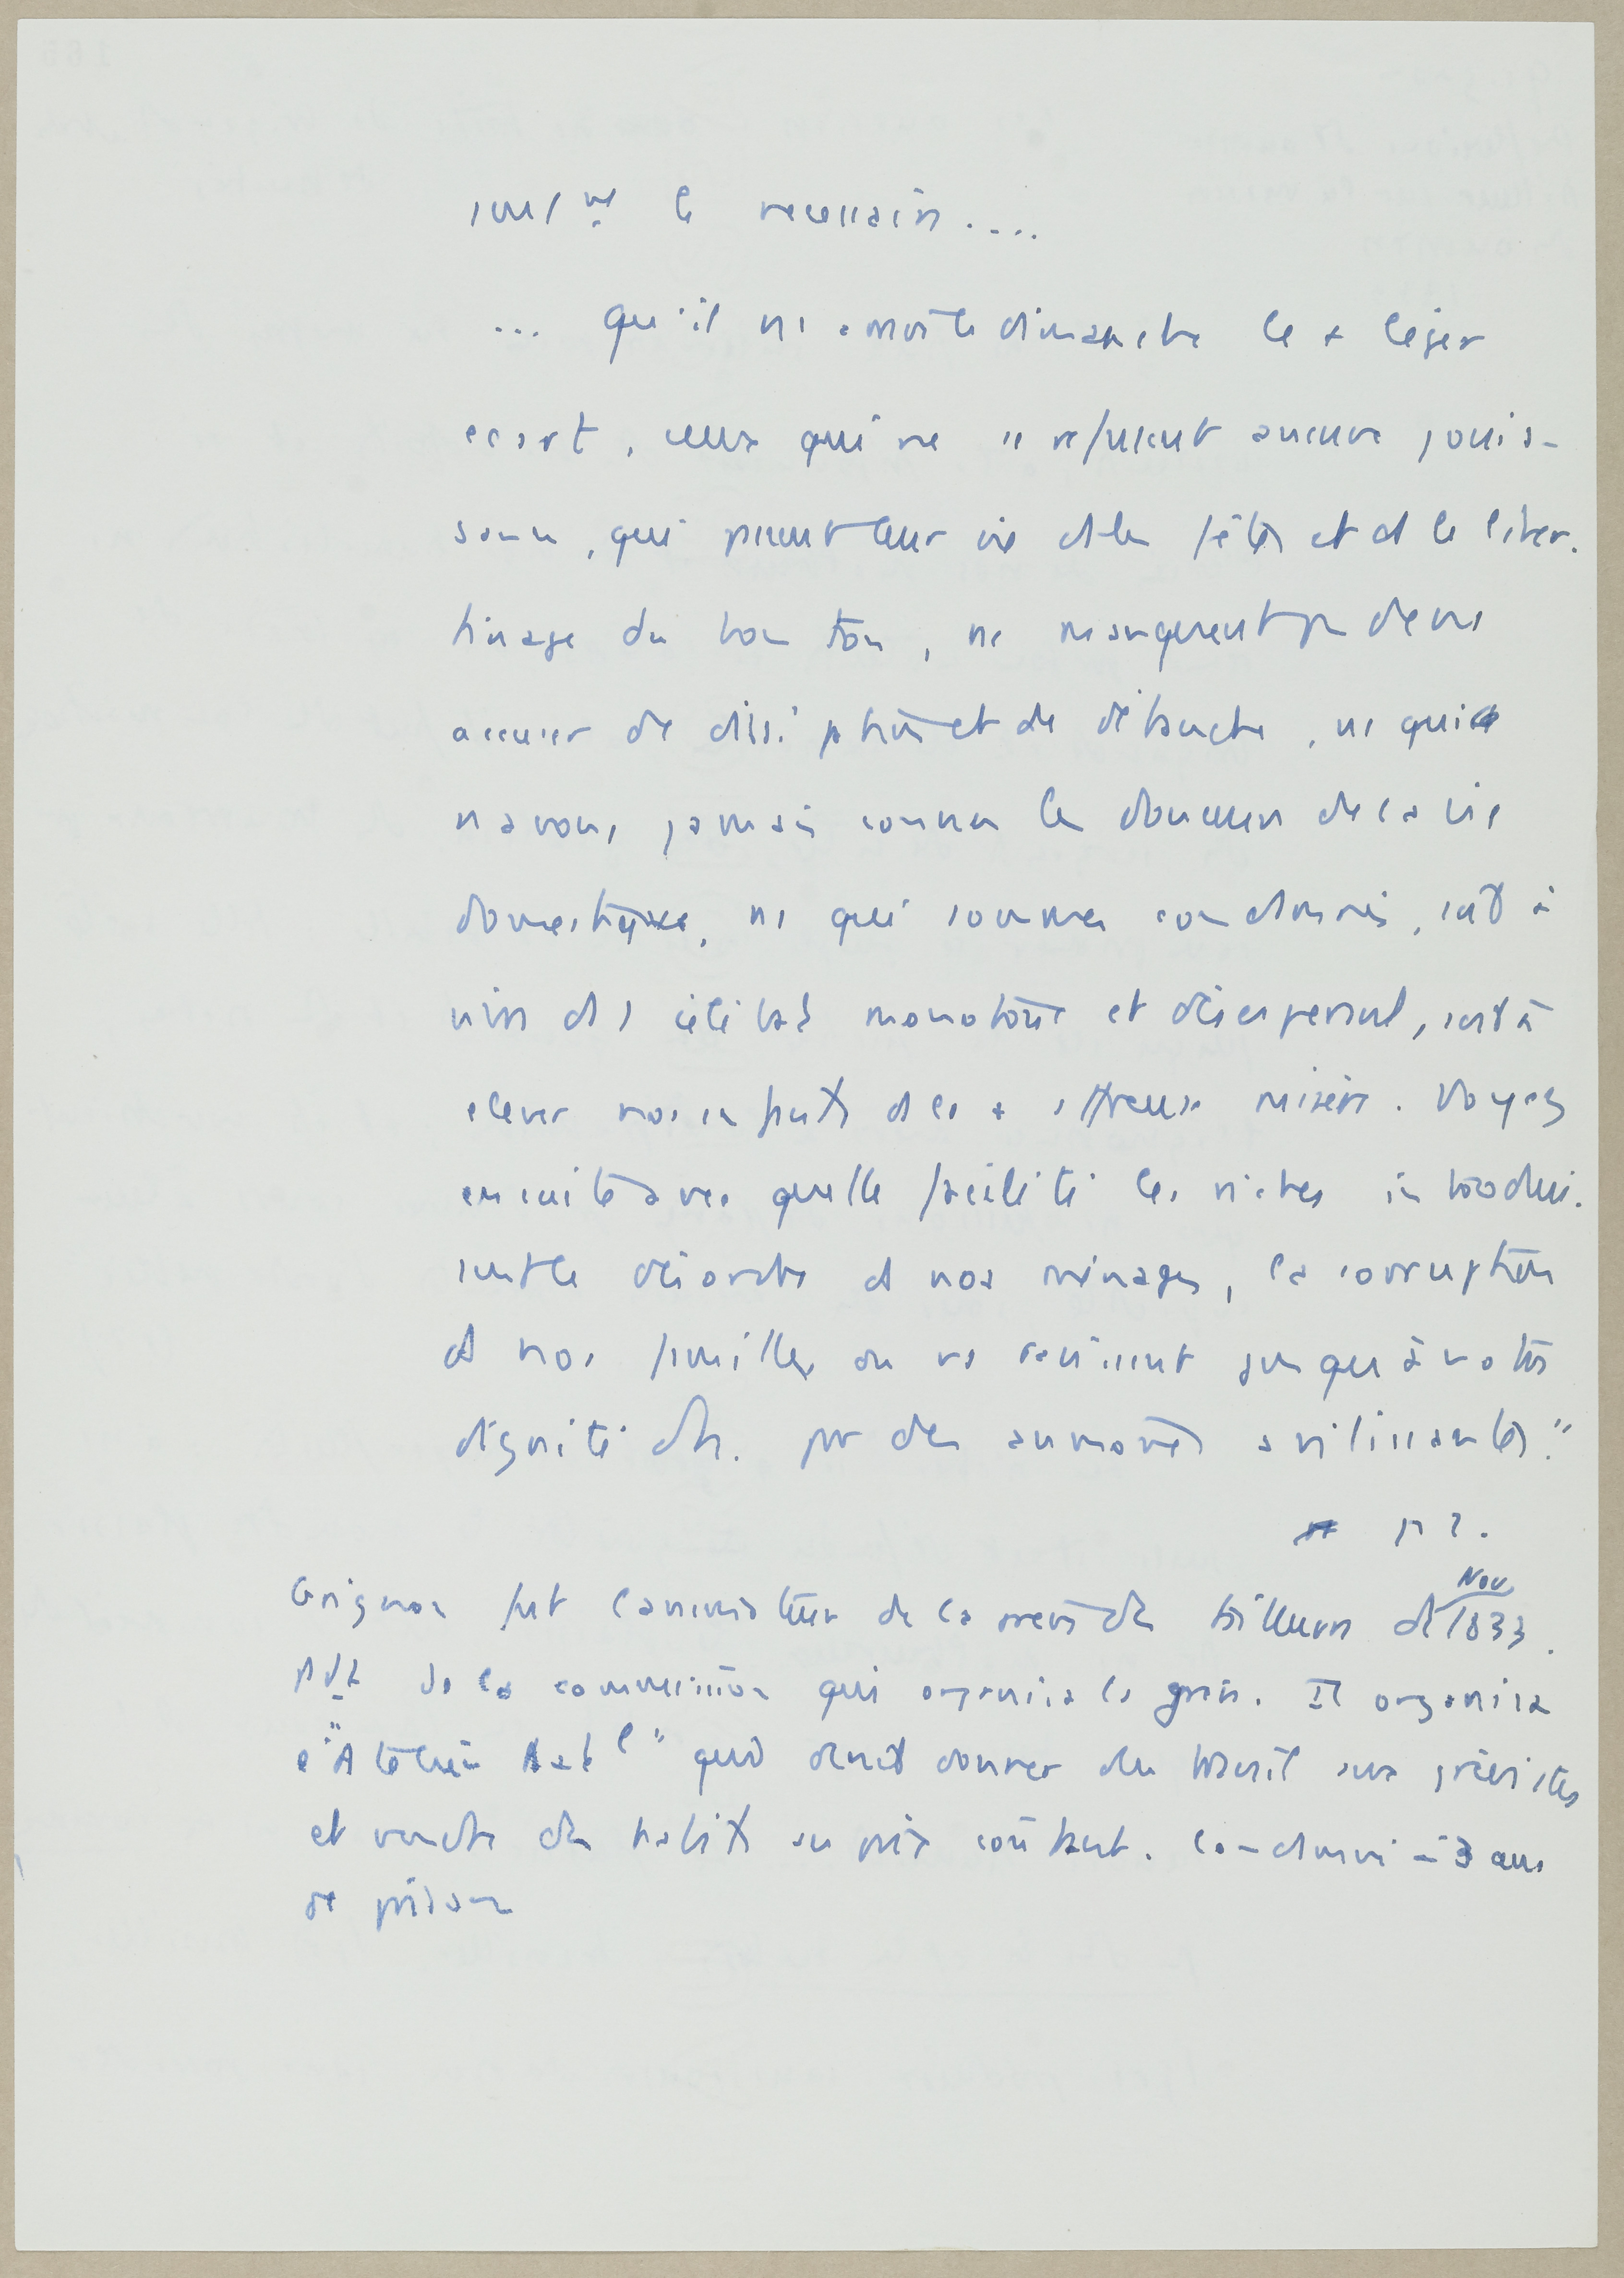 seulnt le necessaire ....
... qu'il ns arrive le dimanche le + léger
ecart, ceux qui ne se refusent aucune jouis-
sance, qui passent leur vie ds les fêtes et ds le liber-
tinage du bon ton, ns manquent pas de ns
accuser de dissipation et de débauche, ns qui
n'avons jamais connu les douceurs de la vie
domestique, ns qui sommes condamnés, soit à
vivre ds 1 célibat monotone et désespérant, soit à
elever nos enfants ds la + affreuse misère. Voyez
ensuite avec quelle facilité les riches introdui-
sent le désordre ds nos ménages, la corruption
ds nos familles ou ns ravissent jusqu'à notre
dignité d'h. par des aumônes avilissantes."
p 2.
Grignon fut l'animateur de la grève des tailleurs de Nov 1833.
Pdt de la commission qui organisa la grève. Il organisa
l'"Atelier Natl" qui devait donner du travail aux grévistes
et vendre des habits au prix coûtant. Condamné à 3 ans
de prison